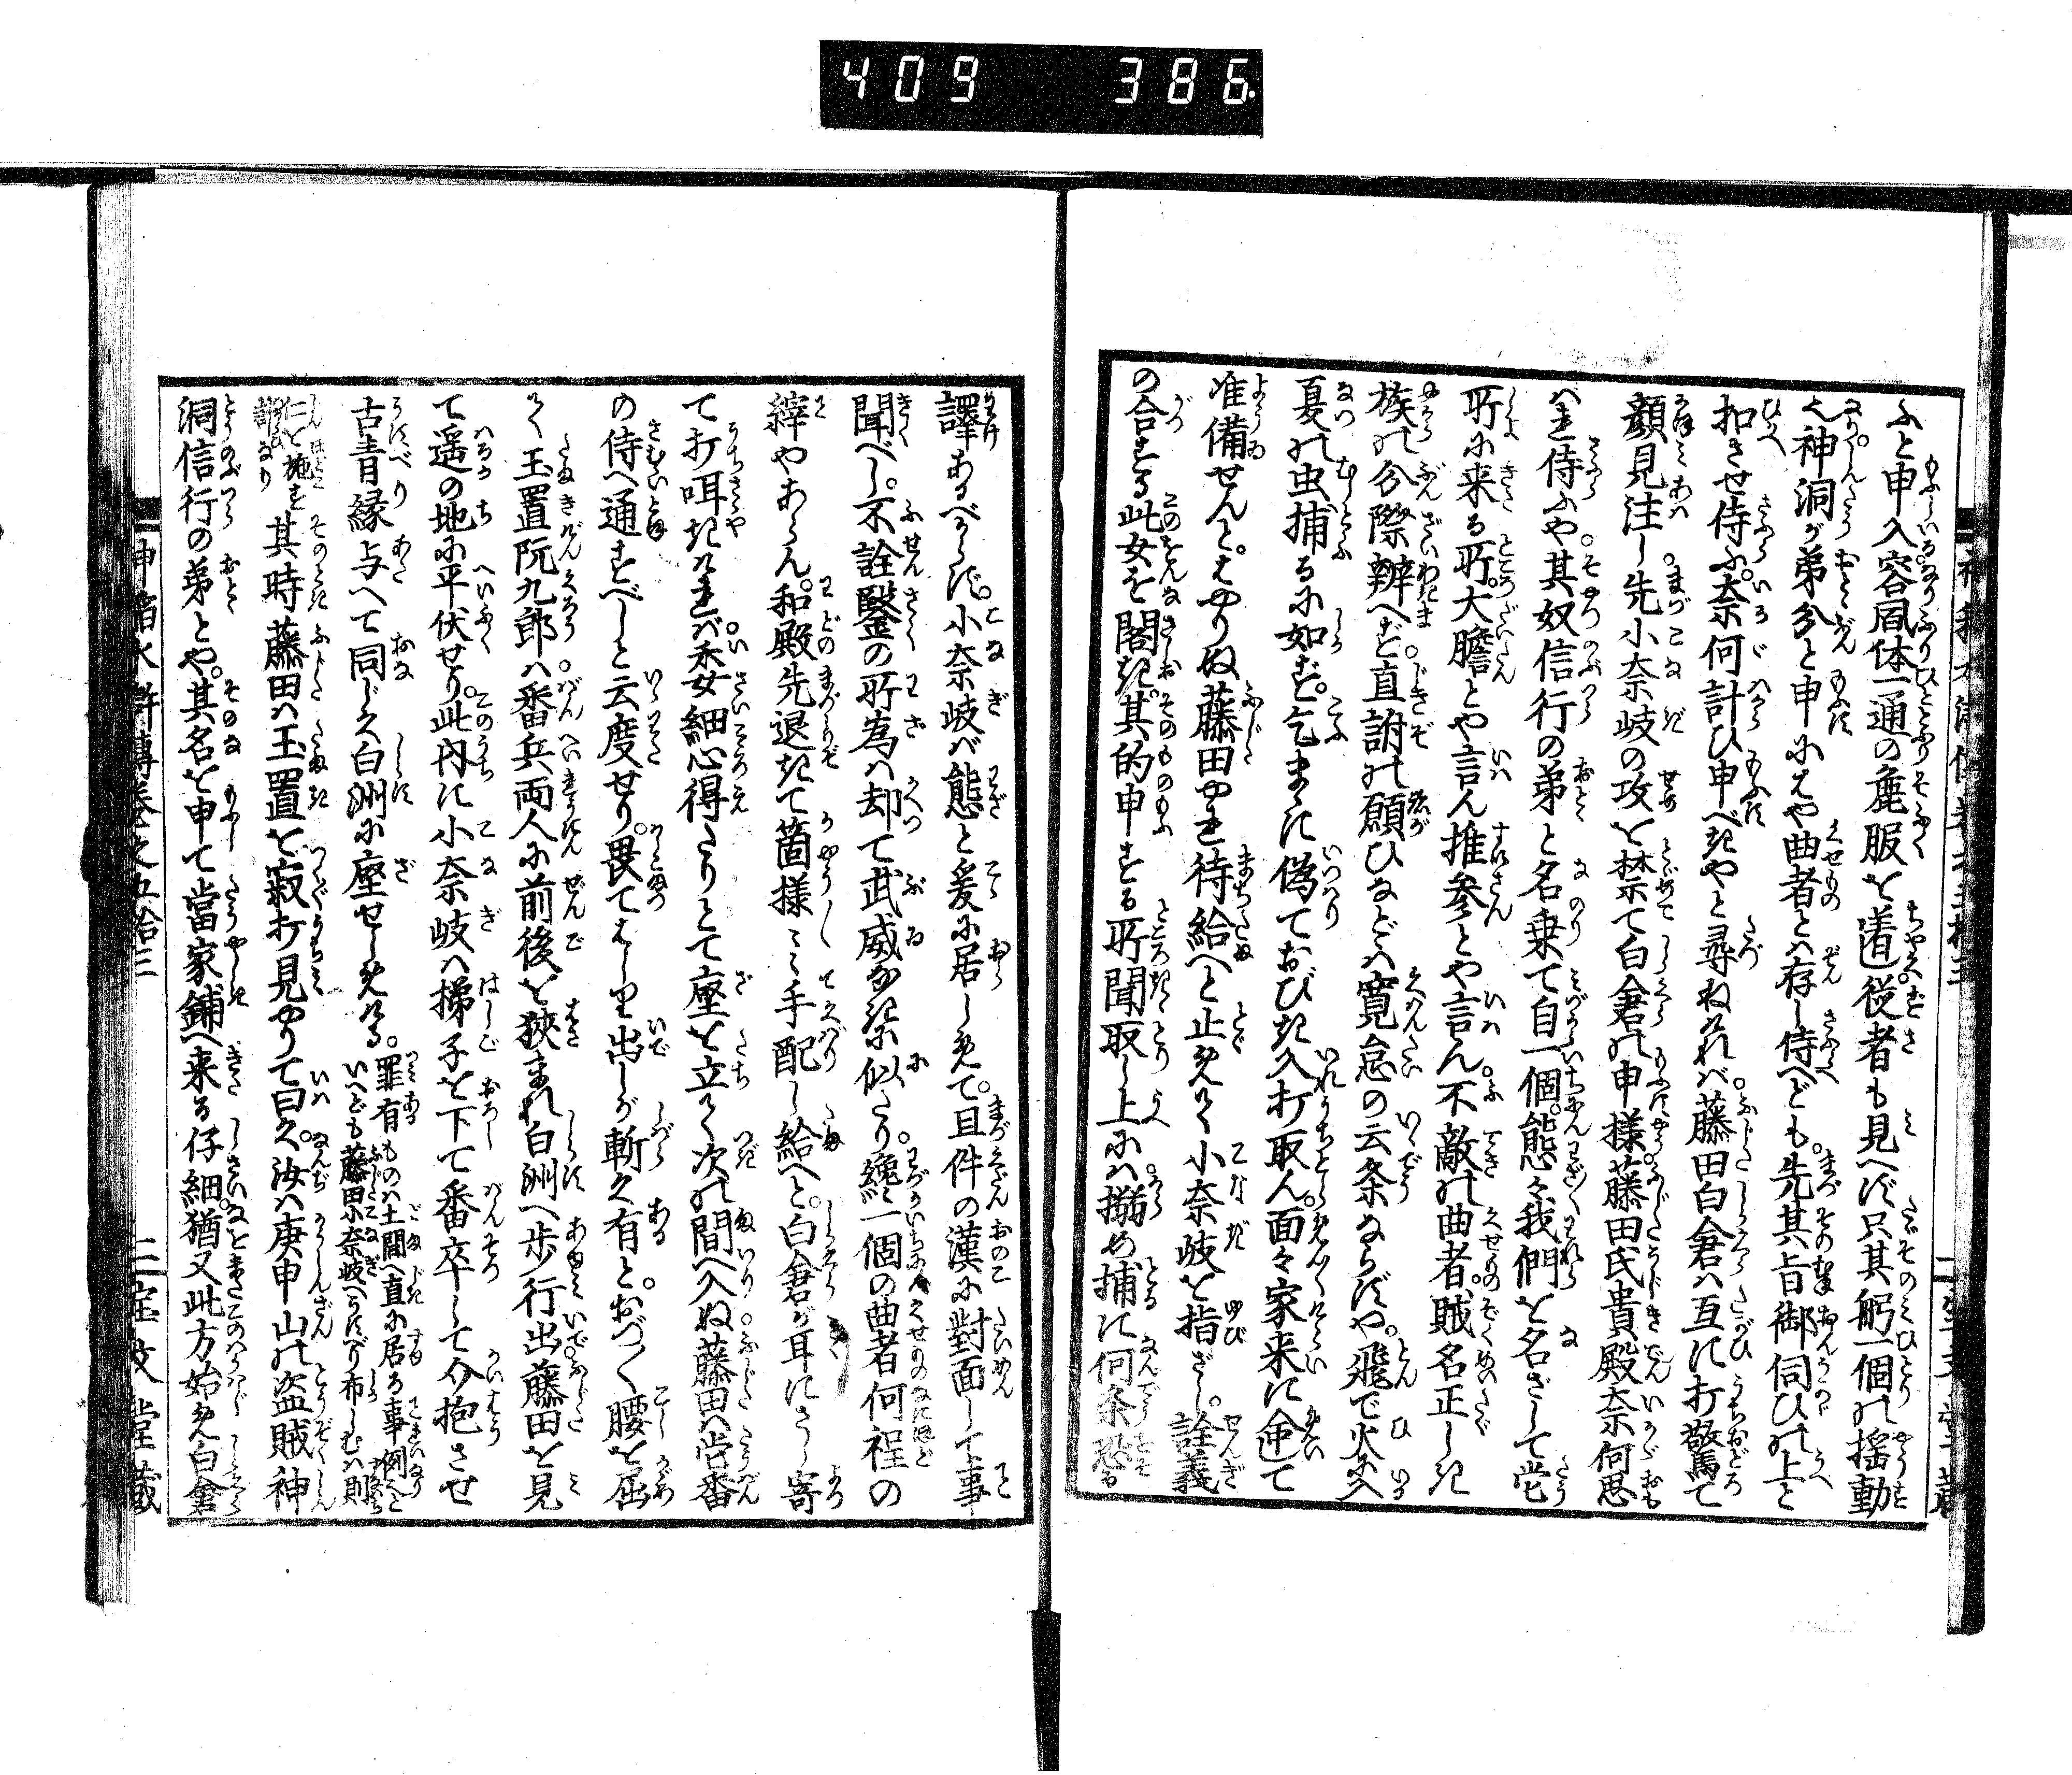 409 386
ふと申入容㒵体一通の麁服を着し従者も見へず只其躬一個の揺動
也神洞が弟分と申にそや曲者とは存じ侍へども先其旨御伺ひの上と
扣させ侍ふ奈何計ひ申べきやと尋ねければ藤田白倉は互に打驚て
顔見注し先小奈岐の攻を禁て白倉の申様藤田氏貴殿奈何思
へき侍ふや其奴信行の弟と名乗て自一個態々我們を名ざして当
所に来る所大膽とや言ん推参とや言ん不敵の曲者賊名正しき
族の分際辨へず直訴の願ひなどゝは寛怠の云条ならずや飛で火に入
夏の虫捕るに如ず乞まゝに偽ておびき入打取ん面々家来に命て
准備せんとはやりぬ藤田やをれ待給へと止めて小奈岐を指ざし詮義
の合する此女を閣き其的申する所聞取し上には搦め捕に何条恐る
譯あるべからず小奈岐が態と爰に居しめて且件の漢に對面して事
聞べし不詮鑿の所為は却て武威なきに似たり纔一個の曲者何程の
縡やあらん和殿先退きて箇様〳〵に手配し給へと白倉が耳にさし寄
て打咡きければ委細心得たりとて座を立て次の間へ入ぬ藤田は当番
の侍へ通すべしと云度せり畏てはしり出しが暫く有とおづ〳〵腰を屈
て玉置阮九郎は番兵両人に前後を狭まれ白洲へ歩行出藤田を見
て遥の地に平伏せり此内に小奈岐は梯子を下て番卒して介抱させ
古青縁与へて同じく白洲に座せしめける 罪有ものは土間へ直に居る事例なりと
いへども藤田小奈岐へうすべり布しむは則
仁を施す
謂なり 其時藤田は玉置を寂打見やりて曰く汝は庚申山の盗賊神
洞信行の弟とや其名を申て當家鋪へ来る仔細猶又此方始め白倉
神稲水滸傳巻之五拾三
二宝文堂蔵